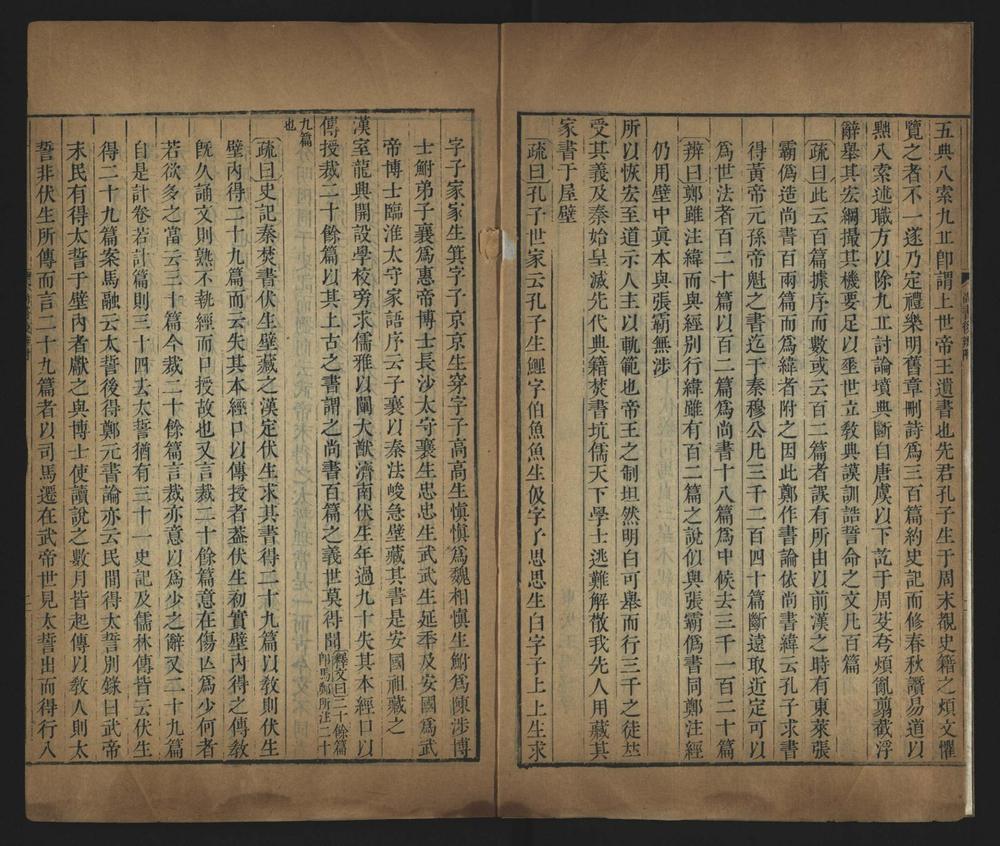 五典八索九丘即謂上世帝王遺書也先君孔子生于周末覩史籍之煩文懼
覽之者不一遂乃定禮樂明舊章刪詩爲三百篇約史記而修春秋讚易道以
黜八索述職方以除九丘討論墳典斷自唐虞以下訖于周芟夸煩亂翦截浮
辭舉其宏綱撮其機要足以垂世立敎典謨訓誥誓命之文凡百篇
疏曰此云百篇據序而數或云百二篇者誤有所由以前漢之時有東萊張
霸僞造尚書百兩篇而爲緯者附之因此鄭作書論依尚書緯云孔子求書
得黃帝元孫帝魁之書迄于秦穆公凡三千二百四十篇斷遠取近定可以
爲世法者百二十篇以百二篇爲尚書十八篇爲中候去三千一百二十篇
辨曰鄭雖注緯而與經别行緯雖有百二篇之說似與張霸僞書同鄭注經
仍用壁中眞本與張霸無涉
所以恢宏至道示人主以軌範也帝王之制坦然明白可舉而行三千之徒竝
受其義及秦始皇滅先代典籍焚書坑儒天下學士逃難解散我先人用藏其
家書于屋壁
疏曰孔子世家云孔子生鯉字伯魚魚生伋字子思思生白字子上上生求
字子家家生箕字子京京生穿字子高高生愼愼爲魏相愼生鮒鮒爲陳涉博
士鮒弟子襄爲惠帝博士長沙太守襄生忠忠生武武生延年及安國爲武
帝博士臨淮太守家語序云子襄以秦法峻急壁藏其書是安國祖藏之
漢室龍興開設學校旁求儒雅以闡大猷濟南伏生年過九十失其本經口以
傳授裁二十餘篇以其上古之書謂之尚書百篇之義世莫得聞釋文曰二十餘篇即馬鄭所注二十
九篇也
疏曰史記秦焚書伏生壁藏之漢定伏生求其書得二十九篇以敎則伏生
壁內得二十九篇而云失其本經口以傳授者蓋伏生初實壁內得之傳敎
旣久誦文則熟不執經而口授故也又言裁二十餘篇意在傷亡爲少何者
若欲多之當云三十篇今裁二十餘篇言裁亦意以爲少之辭又二十九篇
自是計卷若計篇則三十四去太誓猶有三十一史記及儒林傳皆云伏生
得二十九篇案馬融云太誓後得鄭元書論亦云民間得太誓别錄曰武帝
末民有得太誓于壁內者獻之與博士使讀說之數月皆起傳以敎人則太
誓非伏生所傳而言二十九篇者以司馬遷在武帝世見太誓出而得行入